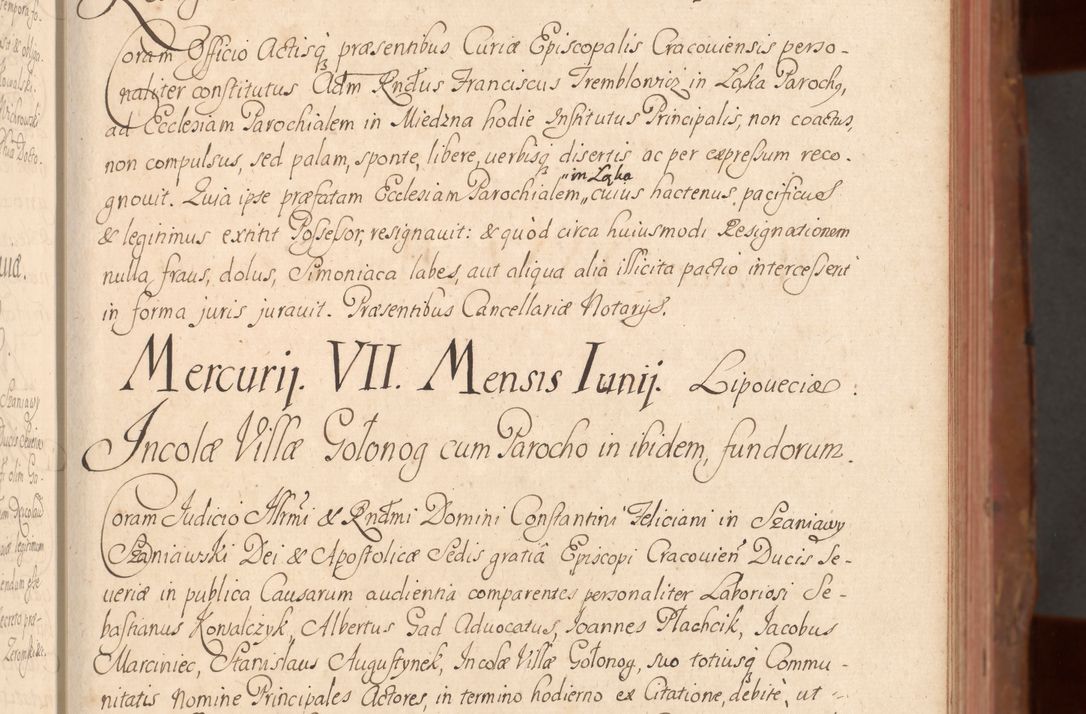 Coram Officio Actisq̨ præsentibus Curiæ Episcopalis Cracoviensis perso-
naliter constitutus Adm Rndus Franciscus Tremblowicz in Łąka Parochq,
ad Ecclesiam Parochialem in Miedzna hodie Institutus Principalis, non coactus,
non compulsus, sed palam, sponte, libere, uerbisq̨ disertis ac per expressum reco-
gnouit. Quia ipse præfatam Ecclesiam Parochialem „in Łąka „cuius hactenus pacificus
& legitimus extitit Possessor, resignauit: & quòd circa huiusmodi Resignationem
nulla fraus, dolus, Simoniaca labes, aut aliqua alia illicita pactio intercesserit
in forma juris jurauit. Præsentibus Cancellariæ Notarijs.
Mercurij. VII. Mensis Iunij. Lipoveciæ:
Incolæ Villæ Gołonog cum Parocho in ibidem, fundorum.
Coram Judicio Illrmi & Rndmi Domini Constantini Feliciani in Szaniawy
Szaniawski Dei & Apostolicæ Sedis gratiâ Episcopi Cracovień Ducis Se-
ueriæ in publica Causarum audientia comparentes personaliter Laboriosi Se-
bastianus Kowalczyk, Albertus Gad Advocatus, Ioannes Płachcik, Iacobus
Marciniec, Stanislaus Augustynek, Incolæ Villæ Gołonog, suo totiusq̨ Commu-
nitatis Nomine Principales Actores, in termino hodierno ex Citatione, debitè, ut